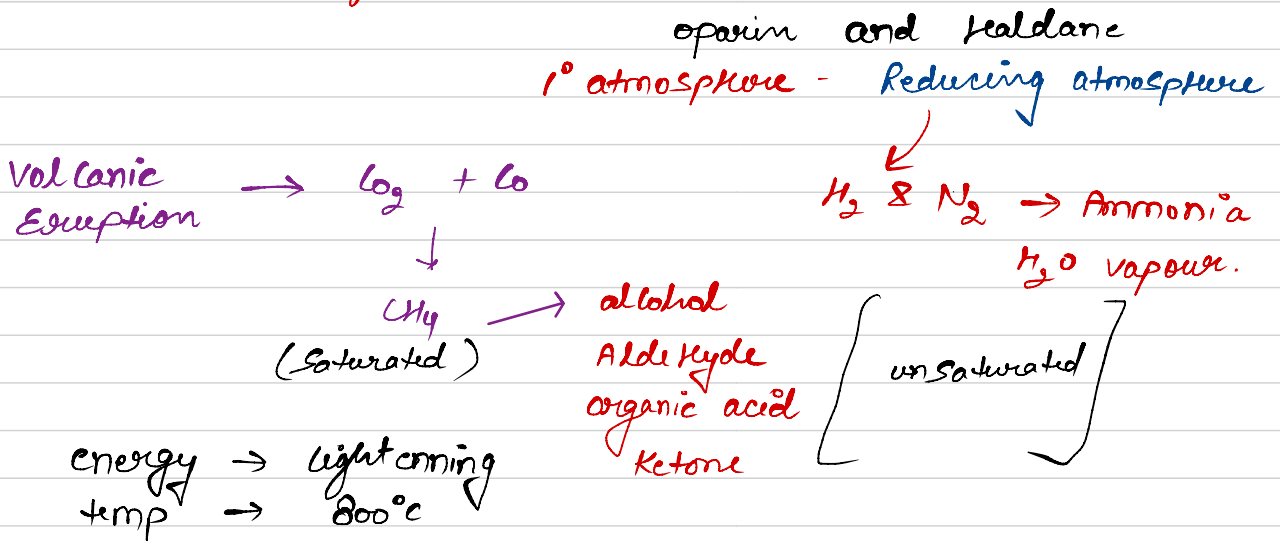 oparin and Healdane
1° atmosphere - Reducing atmosphere
Volcanic Eruption → CO2 + CO
H2 & N2 → Ammonia
H2O vapour.
↓
CH4 → alcohol
(Saturated) AldeHyde [unsaturated]
organic acid
Ketone
energy → lightenning
temp → 800°C